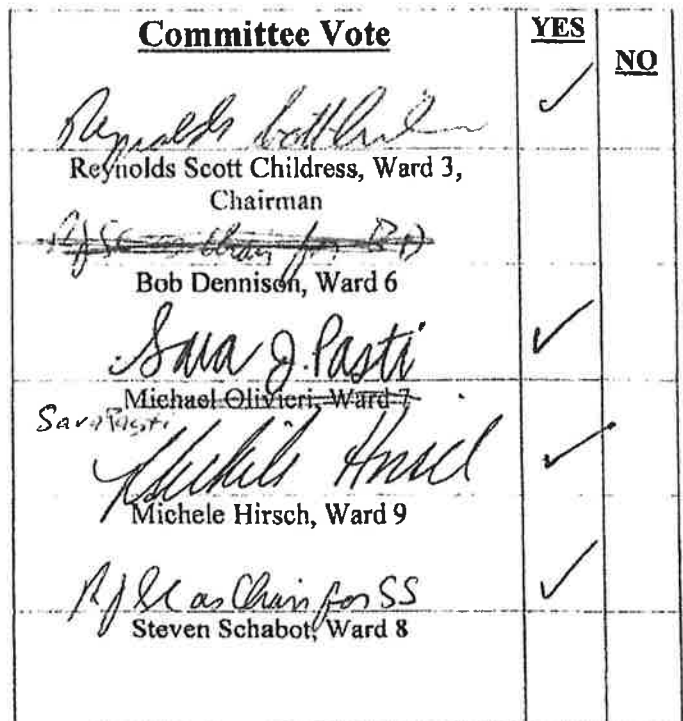 Committee Vote YES NO
Reynolds Scott
Reynolds Scott Childress, Ward 3,
Chairman
Chair for BD
Bob Dennison, Ward 6
Sara J. Pasti
Michael Olivieri, Ward 7
Sara Pasti
Michele Hirsch
Michele Hirsch, Ward 9
as Chair for SS
Steven Schabot, Ward 8